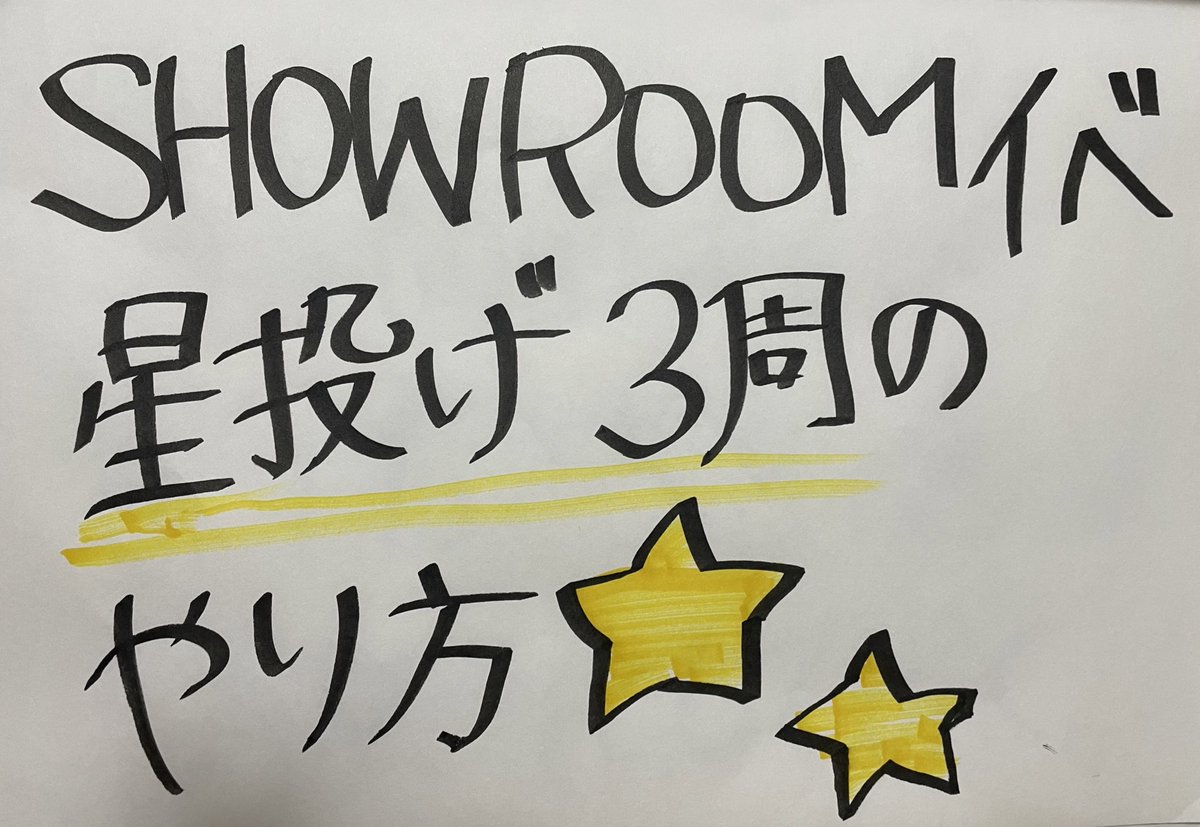 SHOWROOMイベ
星投げ3周の
やり方